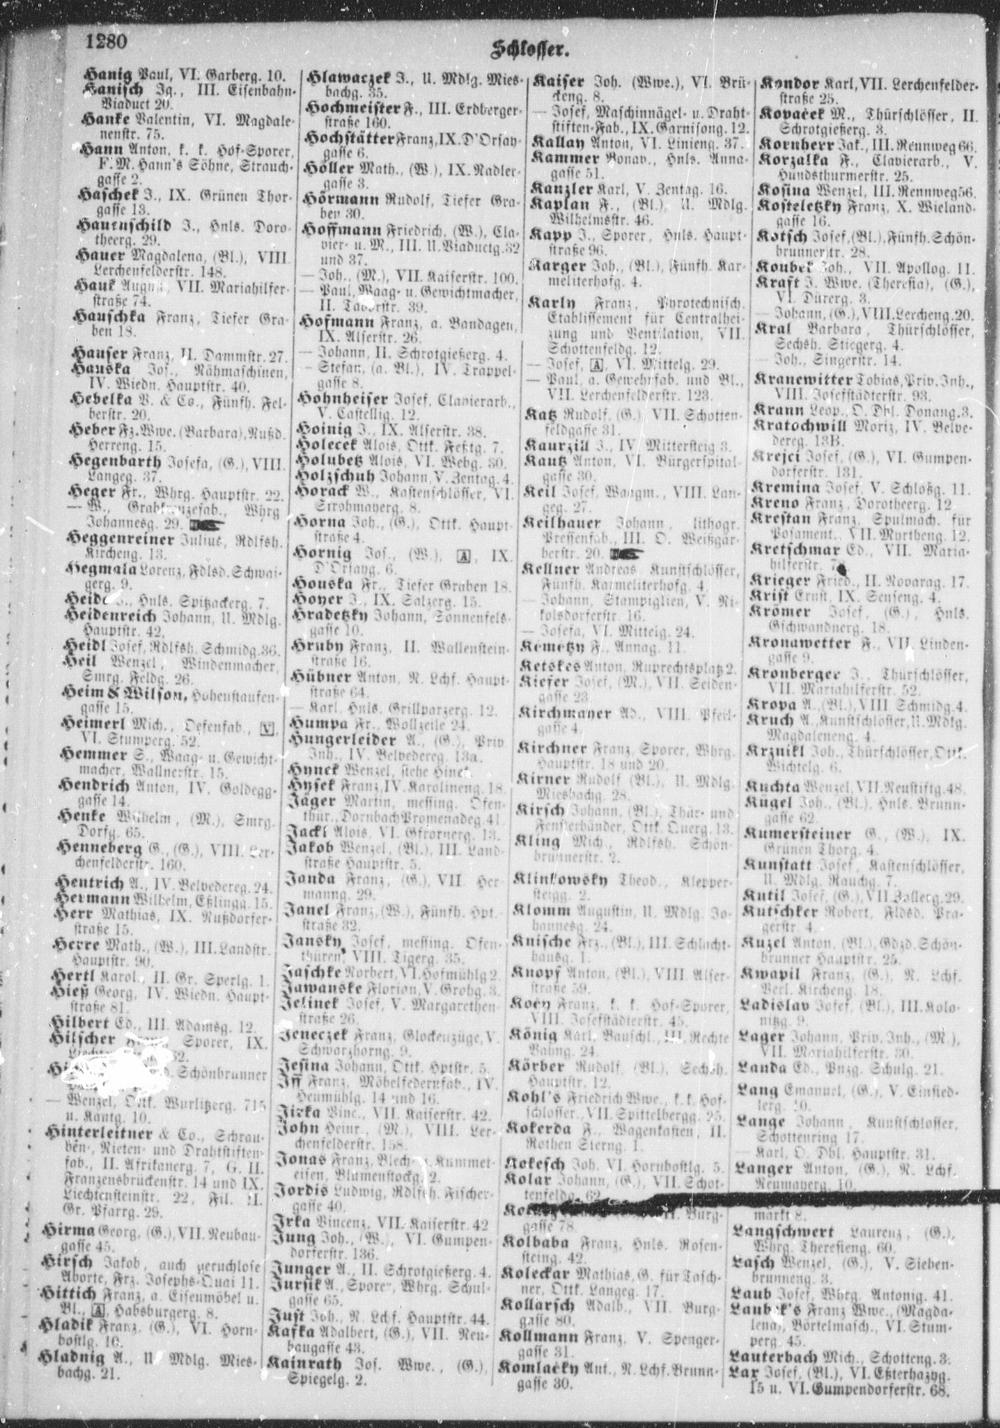 1280
Schlosser.
Hanig Paul, VI. Garberg. 10.
Hanisch Ig., III. Eisenbahn-
Viaduct 20.
Hanke Valentin, VI. Magdale-
nenstr. 75.
Hann Anton, k. k. Hof-Sporer,
F. M. Hann's Söhne, Strauch-
gasse 2.
Haschek J., IX. Grünen Thor-
gasse 13.
Hauenschild J., Hnls. Doro-
theerg. 29.
Hauer Magdalena, (Bl.), VIII.
Lerchenfelderstr. 148.
Hauk August, VII. Mariahilfer-
straße 74.
Hauschka Franz, Tiefer Gra-
ben 18.
Hauser Franz, II. Dammstr. 27.
Hauska Jos., Nähmaschinen,
IV. Wiedn. Hauptstr. 40.
Hebelka V. & Co., Fünfh. Fel-
berstr. 20.
Heber Fz. Wwe. (Barbara), Rußd.
Herreng. 15.
Hegenbarth Josefa, (G.), VIII.
Langeg. 37.
Heger Fr., Whrg. Hauptstr. 22.
— W., Grabkreuzefab., Whrg
Johannesg. 29.
Heggenreiner Julius, Rdlfsh.
Kircheng. 13.
Hegmala Lorenz, Fdlsd. Schwai-
gerg. 9.
Heide J., Hnls. Spitzackerg. 7.
Heidenreich Johann, U. Mdlg.
Hauptstr. 42.
Heidl Josef, Rdlfsh. Schmidg. 36.
Heil Wenzel, Windenmacher,
Smrg. Feldg. 26.
Heim & Wilson, Hohenstaufen-
gasse 15.
Heimerl Mich., Oefenfab., [V],
VI. Stumperg. 52.
Hemmer S., Waag- u. Gewicht-
macher, Wallnerstr. 15.
Hendrich Anton, IV. Goldegg-
gasse 14.
Henke Wilhelm, (M.), Smrg.
Dorfg. 65.
Henneberg G., (G.), VIII. Ler-
chenfelderstr. 160.
Hentrich A., IV. Belvedereg. 24.
Hermann Wilhelm, Eßlingg. 15.
Herr Mathias, IX. Nußdorfer-
straße 15.
Herre Math., (W.), III. Landstr.
Hauptstr. 90.
Hertl Karol., II. Gr. Sperlg. 1.
Hieß Georg, IV. Wiedn. Haupt-
straße 81.
Hilbert Ed., III. Adamsg. 12.
Hilscher Sporer, IX.
32.
Schönbrunner
— Wenzel, Ottk. Wurlitzerg. 715
u. Kantg. 10.
Hinterleitner & Co., Schrau-
ben-, Nieten- und Drahtstiften-
fab., II. Afrikanerg. 7, G. II.
Franzensbrückenstr. 14 und IX.
Liechtensteinstr. 22, Fil. II.
Gr. Pfarrg. 29.
Hirma Georg, (G.), VII. Neubau-
gasse 45.
Hirsch Jakob, auch geruchlose
Aborte, Frz. Josephs-Quai 11.
Hittich Franz, a. Eisenmöbel u.
Bl., [A], Habsburgerg. 8.
Hladik Franz, (G.), VI. Horn-
bostlg. 16.
Hladnig A., U. Mdlg. Mies-
bachg. 21.
Hlawaczek J., U. Mdlg. Mies-
bachg. 35.
Hochmeister F., III. Erdberger-
straße 160.
Hochstätter Franz, IX. D'Orsay-
gasse 6.
Höller Math., (W.), IX. Nadler-
gasse 3.
Hörmann Rudolf, Tiefer Gra-
ben 30.
Hoffmann Friedrich, (W.), Cla-
vier- u. M., III. U. Viaductg. 32
und 37.
— Joh., (M.), VII. Kaiserstr. 100.
— Paul, Waag- u. Gewichtmacher,
II. Taborstr. 39.
Hofmann Franz, a. Bandagen,
IX. Alserstr. 26.
— Johann, II. Schrotgießerg. 4.
— Stefan, (a. Bl.), IV. Trappel-
gasse 8.
Hohnheiser Josef, Clavierarb.,
V. Castellig. 12.
Hoinig J., IX. Alserstr. 38.
Holecek Alois, Ottk. Feßtg. 7.
Holubetz Alois, VI. Webg. 30.
Holzschuh Johann, V. Zentag. 4.
Horack W., Kastenschlösser, VI.
Strohmayerg. 8.
Horna Joh., (G.), Ottk. Haupt-
straße 4.
Hornig Jos., (W.), [A], IX.
D'Orsayg. 6.
Houska Fr., Tiefer Graben 18.
Hoyer J., IX. Salzerg. 15.
Hradetzky Johann, Sonnenfels-
gasse 10.
Hruby Franz, II. Wallenstein-
straße 16.
Hübner Anton, N. Lchf. Haupt-
straße 64.
— Karl, Hnls. Grillparzerg. 12.
Humpa Fr., Wollzeile 24.
Hungerleider A., (G.), Priv.
Inh., IV. Belvedereg. 13a.
Hynek Wenzel, siehe Hinek.
Hysek Franz, IV. Karolineng. 18.
Jäger Martin, messing. Ofen-
thür., Dornbach Promenadeg. 41.
Jackl Alois, VI. Gfrornerg. 13.
Jakob Wenzel, (Bl.), III. Land-
straße Hauptstr. 5.
Janda Franz, (G.), VII. Her-
manng. 29.
Janel Franz, (W.), Fünfh. Hpt.-
straße 32.
Jansky Josef, messing. Ofen-
thüren, VIII. Tigerg. 35.
Jaschke Norbert, VI. Hofmühlg. 2.
Jawanske Florian, V. Grohg. 3.
Jelinek Josef, V. Margarethen-
straße 26.
Jeneczek Franz, Glockenzüge, V.
Schwarzhorng. 9.
Jesina Johann, Ottk. Hptstr. 5.
Iff Franz, Möbelfedernfab., IV.
Heumühlg. 14 und 16.
Jirka Vinc., VII. Kaiserstr. 42.
John Heinr., (M.), VIII. Ler-
chenfelderstr. 158.
Jonas Franz, Blech- u. Kummet-
eisen, Blumenstockg. 2.
Jordis Ludwig, Rdlfsh. Fischer-
gasse 40.
Irka Vincenz, VII. Kaiserstr. 42
Jung Joh., (W.), VI. Gumpen-
dorferstr. 136.
Junger A., II. Schrotgießerg. 4.
Jursik A., Sporer, Whrg. Schul-
gasse 65.
Just Joh., N. Lchf. Hauptstr. 44.
Kafka Adalbert, (G.), VII. Neu-
baugasse 43.
Kainrath Jos. Wwe., (G.),
Spiegelg. 2.
Kaiser Joh. (Wwe.), VI. Brü-
ckeng. 8.
— Josef, Maschinnägel- u. Draht-
stiften-Fab., IX. Garnisong. 12.
Kallay Anton, VI. Linieng. 37.
Kammer Ronav., Hnls. Anna-
gasse 51.
Kanzler Karl, V. Zentag. 16.
Kaplan F., (Bl.), U. Mdlg.
Wilhelmstr. 46.
Kapp J., Sporer, Hnls. Haupt-
straße 96.
Karger Joh., (Bl.), Fünfh. Kar-
meliterhofg. 4.
Karly Franz, Pyrotechnisch.
Etablissement für Centralhei-
zung und Ventilation, VII.
Schottenfeldg. 12.
— Josef, [A], VI. Mittelg. 29.
— Paul, a. Gewehrfab. und Bl.,
VII. Lerchenfelderstr. 123.
Katz Rudolf, (G.) VII. Schotten-
feldgasse 31.
Kaurzill J., IV. Mittersteig 3.
Kautz Anton, VI. Bürgerspital-
gasse 30.
Keil Josef, Waagm., VIII. Lan-
geg. 27.
Keilhauer Johann, lithogr.
Pressenfab., III. O. Weißgär-
berstr. 20.
Kellner Andreas, Kunstschlösser,
Fünfh. Karmeliterhofg. 4.
— Johann, Stampiglien, V. Ni-
kolsdorferstr. 16.
— Josefa, VI. Mittelg. 24.
Kemetzy F., Annag. 11.
Ketskes Anton, Ruprechtsplatz 2.
Kiefer Josef, (M.), VII. Seiden-
gasse 23.
Kirchmayer Ad., VIII. Pfeil-
gasse 4.
Kirchner Franz, Sporer, Whrg.
Hauptstr. 18 und 20.
Kirner Rudolf (Bl.), U. Mdlg.
Miesbachg. 28.
Kirsch Johann, (Bl.), Thür- und
Fensterbänder, Ottk. Querg. 13.
Kling Mich., Rdlfsh. Schön-
brunnerstr. 2.
Klinkowsky Theod., Klepper-
steigg. 2.
Klomm Augustin, U. Mdlg. Jo-
hannesg. 24.
Knische Frz., (Bl.), III. Schlacht-
hausg. 1.
Knopf Anton, (Bl.), VIII. Alser-
straße 59.
Koch Franz, k. k. Hof-Sporer,
VIII. Josefstädterstr. 45.
König Karl, Bauschl., III. Rechte
Bahng. 24.
Körber Rudolf, (Bl.), Sechsh.
Hauptstr. 12.
Kohl's Friedrich Wwe., k. k. Hof-
schlosser, VII. Spittelbergg. 25.
Kokerda F., Wagenkasten, II.
Rothen Sterng. 1.
Kokesch Joh. VI. Hornbostlg. 5.
Kolar Johann, (G.), VII. Schot-
tenfeldg. 62.
VII. Burg-
gasse 78.
Kolbaba Franz, Hnls. Rosen-
steing. 42.
Koleckar Mathias, G. für Tasch-
ner, Ottk. Langeg. 17.
Kollarsch Adalb., VII. Burg-
gasse 80.
Kollmann Franz, V. Spenger-
gasse 31.
Komlacky Ant., N. Lchf. Brunn-
gasse 30.
Kondor Karl, VII. Lerchenfelder-
straße 25.
Kopacek M., Thürschlösser, II.
Schrotgießerg. 3.
Kornherr Jak., III. Rennweg 66.
Korzalka F., Clavierarb., V.
Hundsthurmerstr. 25.
Kosina Wenzel, III. Rennweg 56.
Kosteletzky Franz, X. Wieland-
gasse 16.
Kotsch Josef, (Bl.), Fünfh. Schön-
brunnerstr. 28.
Koubek Joh., VII. Apollog. 11.
Kraft J. Wwe. (Theresia), (G.),
VI. Dürerg. 3.
— Johann, (G.), VIII. Lercheng. 20.
Kral Barbara, Thürschlösser,
Sechsh. Stiegerg. 4.
— Joh., Singerstr. 14.
Kranewitter Tobias, Priv. Inh.,
VIII. Josefstädterstr. 93.
Krann Leop., O. Dbl. Donaug. 3.
Kratochwill Moriz, IV. Belve-
dereg. 13B.
Krejci Josef, (G.), VI. Gumpen-
dorferstr. 131.
Kremina Josef, V. Schloßg. 11.
Kreno Franz, Dorotheerg. 12.
Krestan Franz, Spulmach. für
Posament., VII. Myrtheng. 12.
Kretschmar Ed., VII. Maria-
hilferstr.
Krieger Fried., II. Novarag. 17.
Krist Ernst, IX. Senseng. 4.
Krömer Josef, (G.), Hnls.
Gschwandnerg. 18.
Kronawetter F., VII. Linden-
gasse 9.
Kronberger J., Thürschlösser,
VII. Mariahilferstr. 52.
Kropa A., (Bl.), VIII. Schmidg. 4.
Kruch A., Kunstschlosser, U. Mdlg.
Magdaleneng. 4.
Krznikl Joh., Thürschlösser, Ottk.
Wichtelg. 6.
Kuchta Wenzel, VII. Neustiftg. 48.
Kugel Joh., (Bl.), Hnls. Brunn-
gasse 62.
Kumersteiner G., (W.), IX.
Grünen Thorg. 4.
Kunstatt Josef, Kastenschlösser,
U. Mdlg. Rauchg. 7.
Kutil Josef, (G.), VII. Zollerg. 29.
Kutscher Robert, Fldsd. Pra-
gerstr. 4.
Kuzel Anton, (Bl.), Gdzd. Schön-
brunner Hauptstr. 25.
Kwapil Franz, (G.), N. Lchf.
Verl. Kircheng. 18.
Ladislav Josef, (Bl.), III. Kolo-
nitzg. 9.
Lager Johann, Priv. Inh., (M.),
VII. Mariahilferstr. 30.
Landa Ed., Pnzg. Schulg. 21.
Lang Emanuel, (G.), V. Einsied-
lerg.
Lange Johann, Kunstschlosser,
Schottenring 17.
— Karl, O. Dbl. Hauptstr. 31.
Langer Anton, (G.), N. Lchf.
Neumayerg. 10.
markt 8.
Langschwert Laurenz, (G.),
Whrg. Theresieng. 60.
Lasch Wenzel, (G.), V. Sieben-
brunneng. 3.
Laub Josef, Whrg. Antonig. 41.
Laubek's Franz Wwe., (Magda-
lena), Börtelmasch., VI. Stum-
perg. 45.
Lauterbach Mich., Schotteng. 3.
Lax Josef, (Bl.), VI. Eßterhazyg.
15 u. VI. Gumpendorferstr. 68.